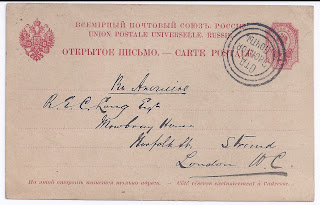 ВСЕМІРНЫЙ ПОЧТОВЫЙ СОЮЗЪ. РОССІЯ
UNION POSTALE UNIVERSELLE. RUSSIE
ОТКРЫТОЕ ПИСЬМО. — CARTE POSTALE
R. E. C. Long Esqre
Mowbray House
Norfolk St Strand
London W.C.
На этой сторонѣ пишется только адресъ. — Côté réservé exclusivement à l'adresse.